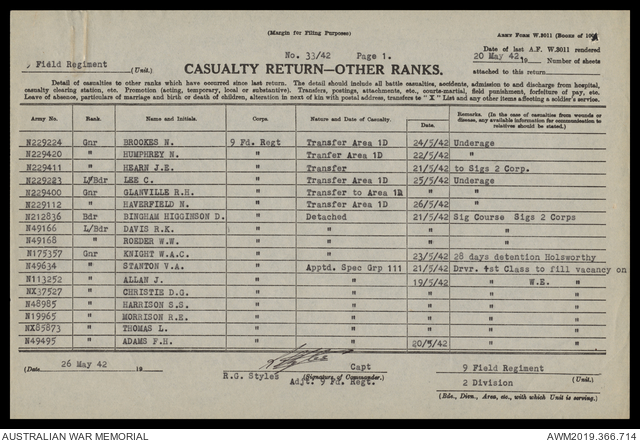 (Margin for Filing Purposes)
ARMY FORM W.3011 (BOOKS OF 100)
No. 33/42 Page 1.
Date of last A.F. W.3011 rendered
9 Field Regiment (Unit.)
20 May 42 19 Number of sheets
CASUALTY RETURN—OTHER RANKS.
attached to this return
Detail of casualties to other ranks which have occurred since last return. The detail should include all battle casualties, accidents, admission to and discharge from hospital,
casualty clearing station, etc. Promotion (acting, temporary, local or substantive). Transfers, postings, attachments, etc., courts-martial, field punishment, forfeiture of pay, etc.
Leave of absence, particulars of marriage and birth or death of children, alteration in next of kin with postal address, transfers to "X" List and any other items affecting a soldier's service.
Army No. Rank. Name and Initials. Corps. Nature and Date of Casualty. Date. Remarks. (In the case of casualties from wounds or
disease, any available information for communication to
relatives should be stated.)
N229224 Gnr BROOKES N. 9 Fd. Regt Transfer Area 1D 24/5/42 Underage
N229420 " HUMPHREY N. " Tranfer Area 1D 22/5/42 "
N229411 " HEARN J.E. " Transfer 21/5/42 to Sigs 2 Corp.
N229223 L/Bdr LEE C. " Transfer Area 1D 25/5/42 Underage
N229400 " GLANVILLE R.H. " Transfer to Area 1D " "
N229112 " HAVERFIELD N. " Transfer Area 1D 26/5/42 "
N212836 Bdr BINGHAM HIGGINSON D. " Detached 21/5/42 Sig Course Sigs 2 Corps
N49166 L/Bdr DAVIS R.K. " " " " "
N49168 " ROEDER W.W. " " " " "
N175357 Gnr KNIGHT W.A.C. " 23/5/42 28 days detention Holsworthy
N49634 " STANTON V.A. " Apptd. Spec Grp 111 21/5/42 Drvr. 1st Class to fill vacancy on
N113252 " ALLAN J. " " 19/5/42 " W.E. "
NX37527 " CHRISTIE D.G. " " " " " "
N48985 " HARRISON S.S. " " " " " "
N19965 " MORRISON R.E. " " " " " "
NX85873 " THOMAS L. " " " " " "
N49495 " ADAMS F.H. " " 20/5/42 " " "
(Date 26 May 42 19 )
Capt
R.G. Styles (Signature of Commander.)
Adjt. 9 Fd. Regt.
9 Field Regiment (Unit.)
2 Division
(Bde., Divn., Area, etc., with which Unit is serving.)
AUSTRALIAN WAR MEMORIAL
AWM2019.366.714